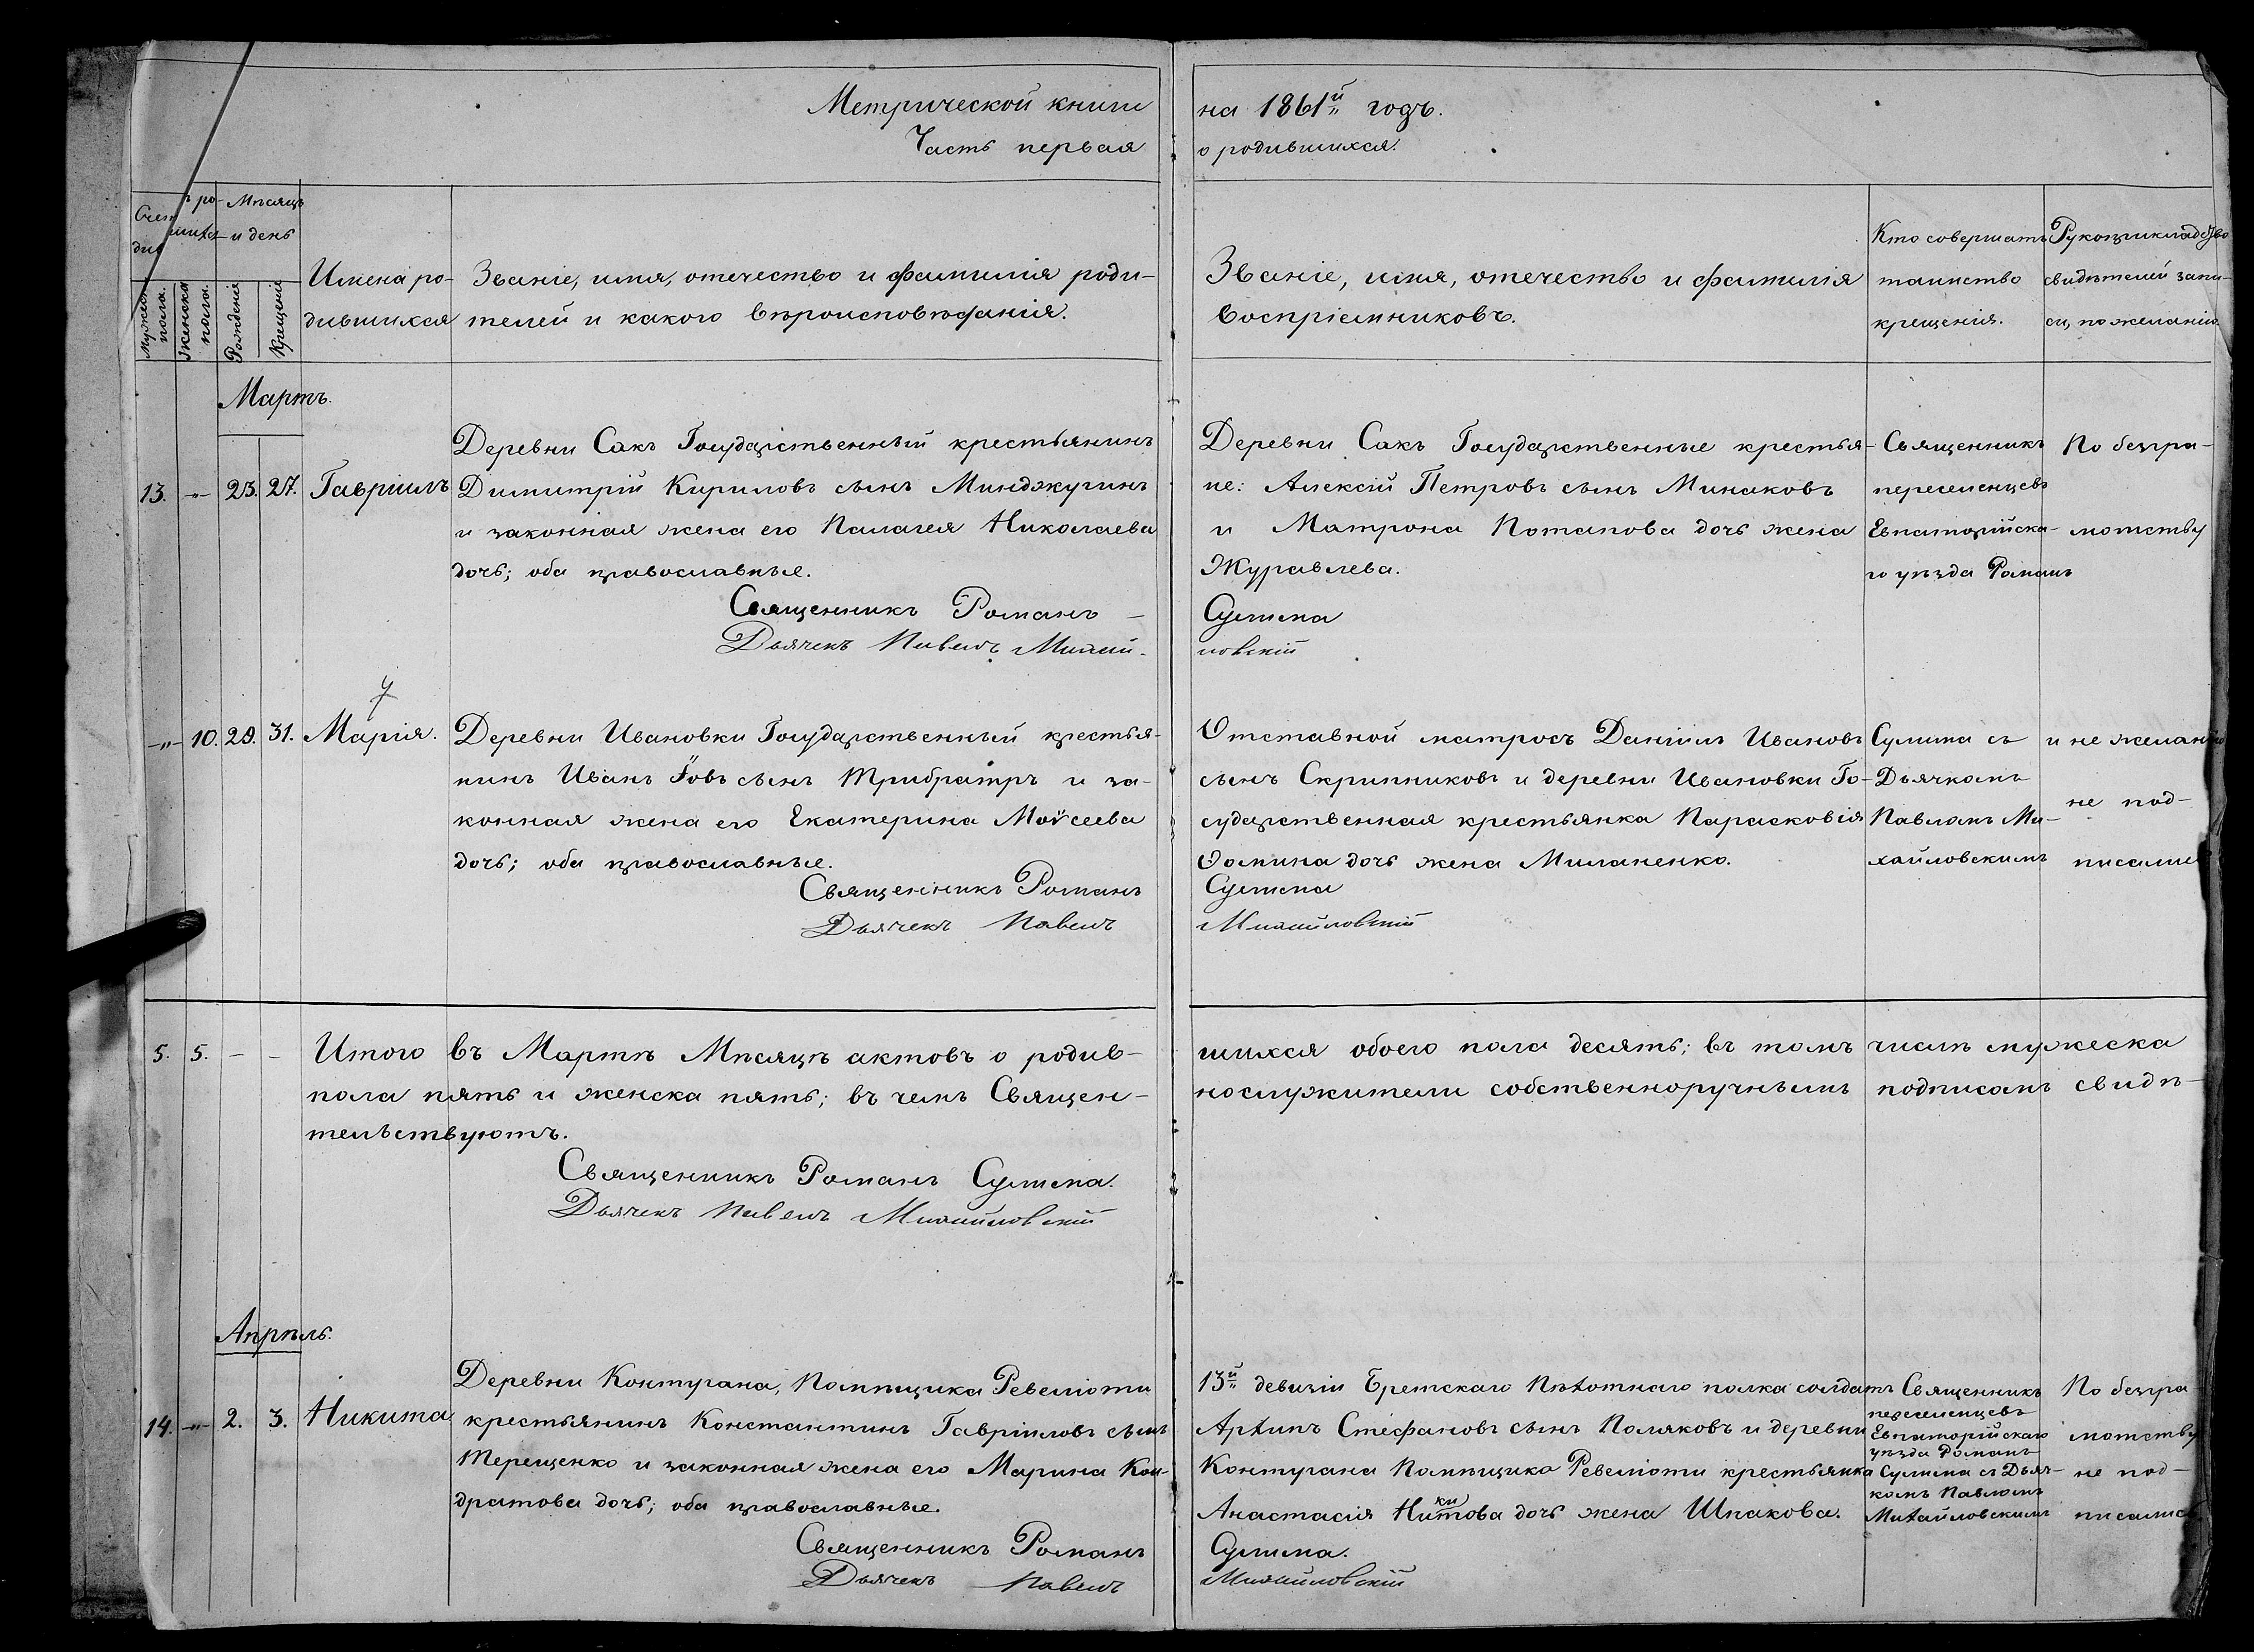 Метрической книги на 1861й годъ.
Часть первая о родившихся.
Счетъ ро-
дившихся
Мѣсяцъ
и день
Мужеска
пола.
Женска
пола.
Рожденія
Крещенія
Имена ро-
дившихся
Званіе, имя, отечество и фамилія роди-
телей и какого вѣроисповѣданія.
Званіе, имя, отечество и фамилія
воспріемниковъ.
Кто совершалъ
таинство
крещенія.
Рукоприкладство
свидѣтелей запи-
си, по желанію.
Мартъ.
13. -„- 23. 27. Гавріилъ
Деревни Сакъ Государственный крестьянинъ
Димитрій Кириловъ сынъ Минджуринъ
и законная жена его Палагея Николаева
дочь; оба православные.
Деревни Сакъ Государственные крестья-
не: Алексій Петровъ сынъ Минаковъ
и Матрона Потапова дочь жена
Журавлева.
Священникъ
переселенцевъ
Евпаторійска-
го уѣзда Романъ
По безгра-
мотству
Священникъ Романъ Сулима
Дьячекъ Павелъ Михай-ловскій
-„- 10. 29. 31. Марія.
Деревни Ивановки Государственный крестья-
нинъ Иванъ Іовъ сынъ Трибратръ и за-
конная жена его Екатерина Моѵсеева
дочь; оба православные.
Отставной матросъ Даніилъ Ивановъ
сынъ Скрипниковъ и деревни Ивановки Го-
сударственная крестьянка Парасковія
Ѳомина дочь жена Миланенко.
Сулима съ
Дьячкомъ
Павломъ Ми-
хайловскимъ
и не желанію
не под-
писались
Священникъ Романъ Сулима
Дьячекъ Павелъ Михайловскій
5. 5. - - Итого въ Мартѣ Мѣсяцѣ актовъ о родив-шихся обоего пола десять; въ томъ числѣ мужеска
пола пять и женска пять; въ чемъ Священ-нослужители собственноручнымъ подписомъ свидѣ-
тельствуютъ.
Священникъ Романъ Сулима.
Дьячекъ Павелъ Михайловскій
Апрѣль.
14. -„- 2. 3. Никита
Деревни Контугана, Помѣщика Ревеліоти
крестьянинъ Константинъ Гавріиловъ сынъ
Терещенко и законная жена его Марина Кон-
дратова дочь; оба православные.
13й девизіи Бретскаго Пѣхотнаго полка солдатъ
Архипъ Стефановъ сынъ Поляковъ и деревни
Контугана Помѣщика Ревеліоти крестьянка
Анастасія Никитова дочь жена Шпакова.
Священникъ
переселенцевъ
Евпаторійскаго
уѣзда Романъ
Сулима съ Дьяч-
комъ Павломъ
Михайловскимъ
По безгра-
мотству
не под-
писались
Священникъ Романъ Сулима.
Дьячекъ Павелъ Михайловскій